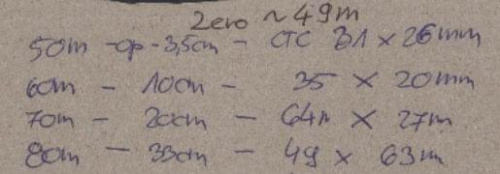 Zero ~ 49m
50m - op - 3,5cm - CTC 31 x 26mm
60m - 10cm - 35 x 20mm
70m - 20cm - 64m x 27m
80m - 33cm - 49 x 63m